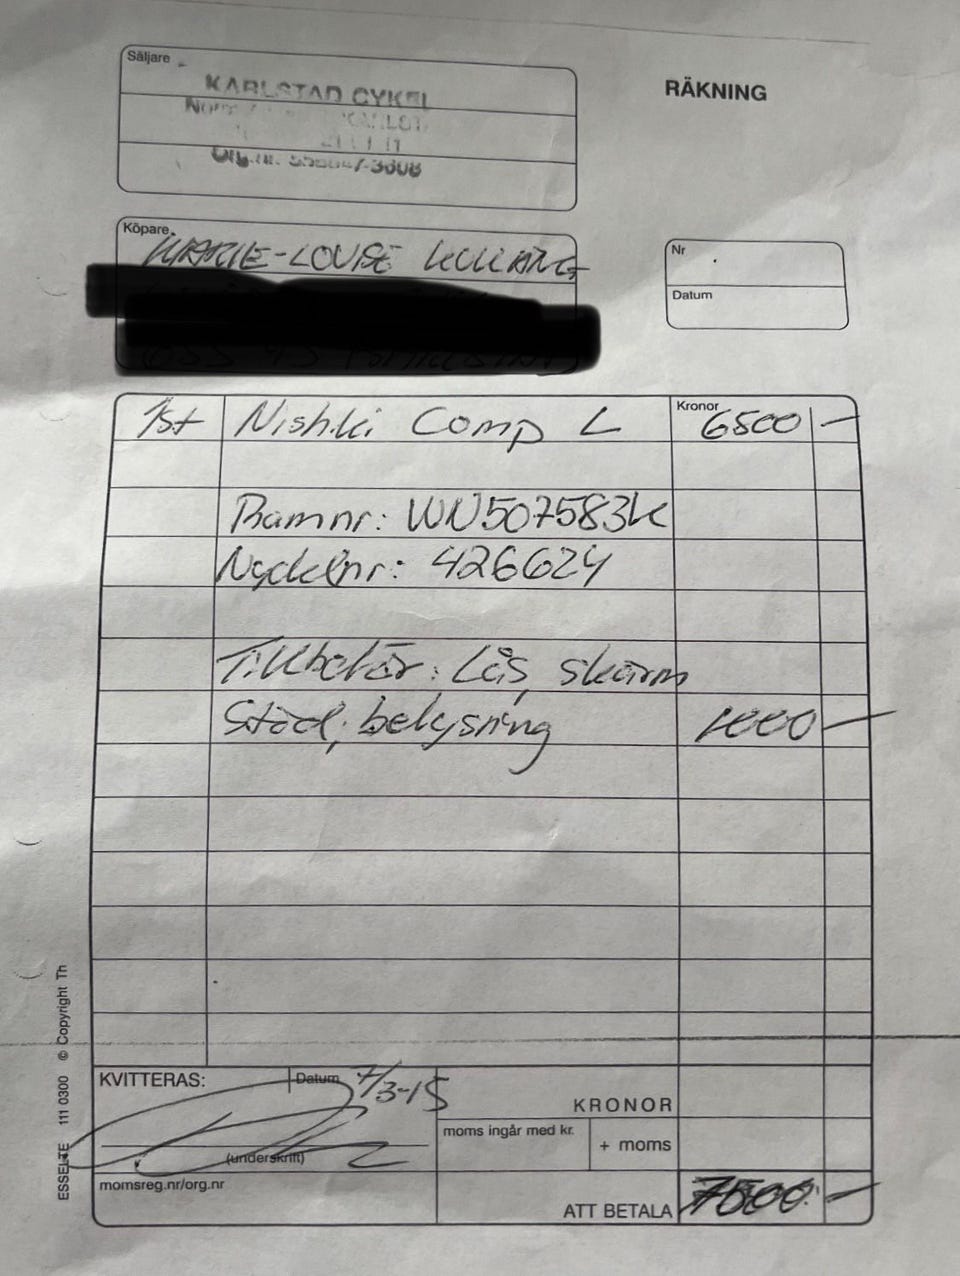 Säljare
KARLSTAD CYKEL
RÄKNING
Köpare
MARIE-LOUISE
Nr
Datum
Kronor
1st Nishiki Comp L 6500 -
Ramnr: WU507583K
Nyckelnr: 426624
Tillbehör: Lås, skärm
Stöd, belysning 1000 -
KVITTERAS:
Datum 7/3-15
KRONOR
moms ingår med kr.
+ moms
(underskrift)
momsreg.nr/org.nr
ATT BETALA 7500 -
ESSELTE 111 0300 © Copyright Th